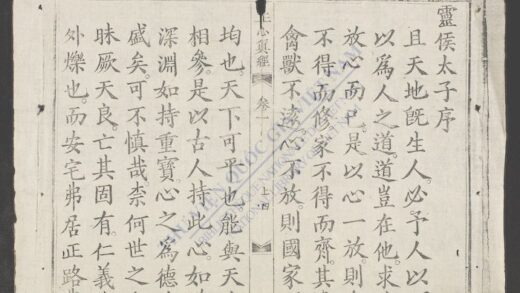 靈侯太子序
且天地旣生人。必予人以
以爲人之道。道豈在他。求
放心而已。是以心一放。則
不得而修。家不得而齊。其
禽獸不遠。心不放。則國家
正心真經 卷一
均也。天下可平也。能與天
相參。是以古人持此心如
深淵。如持重寶。心之爲德
盛矣。可不慎哉。柰何世之
昧厥天良。亡其固有。仁義
外爍也。而安宅弗居。正路
VIỆN QUỐC GIA VIỆT NAM